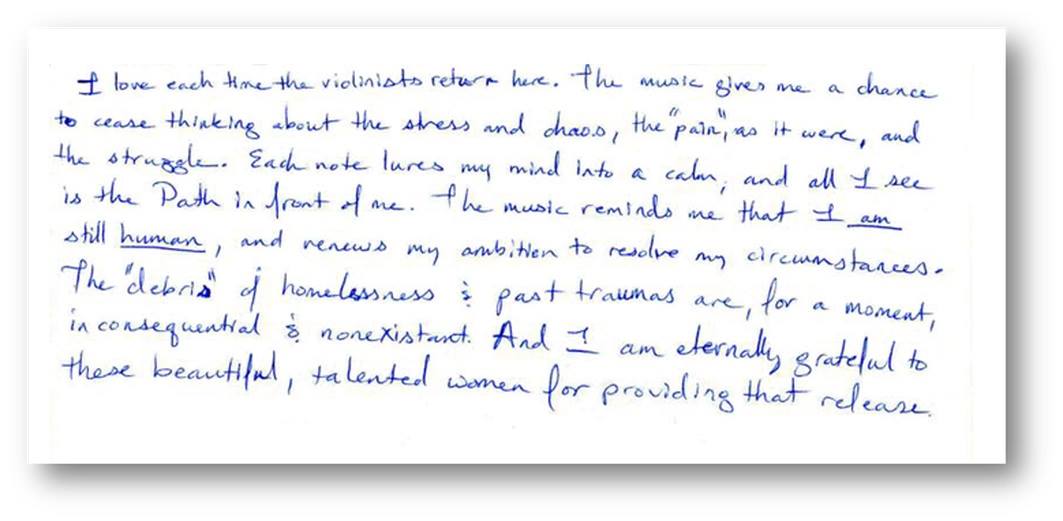 I love each time the violinists return here. The music gives me a chance
to cease thinking about the stress and chaos, the "pain", as it were, and
the struggle. Each note lures my mind into a calm, and all I see
is the Path in front of me. The music reminds me that I am
still human, and renews my ambition to resolve my circumstances.
The "debris" of homelessness & past traumas are, for a moment,
inconsequential & nonexistant. And I am eternally grateful to
these beautiful, talented women for providing that release.